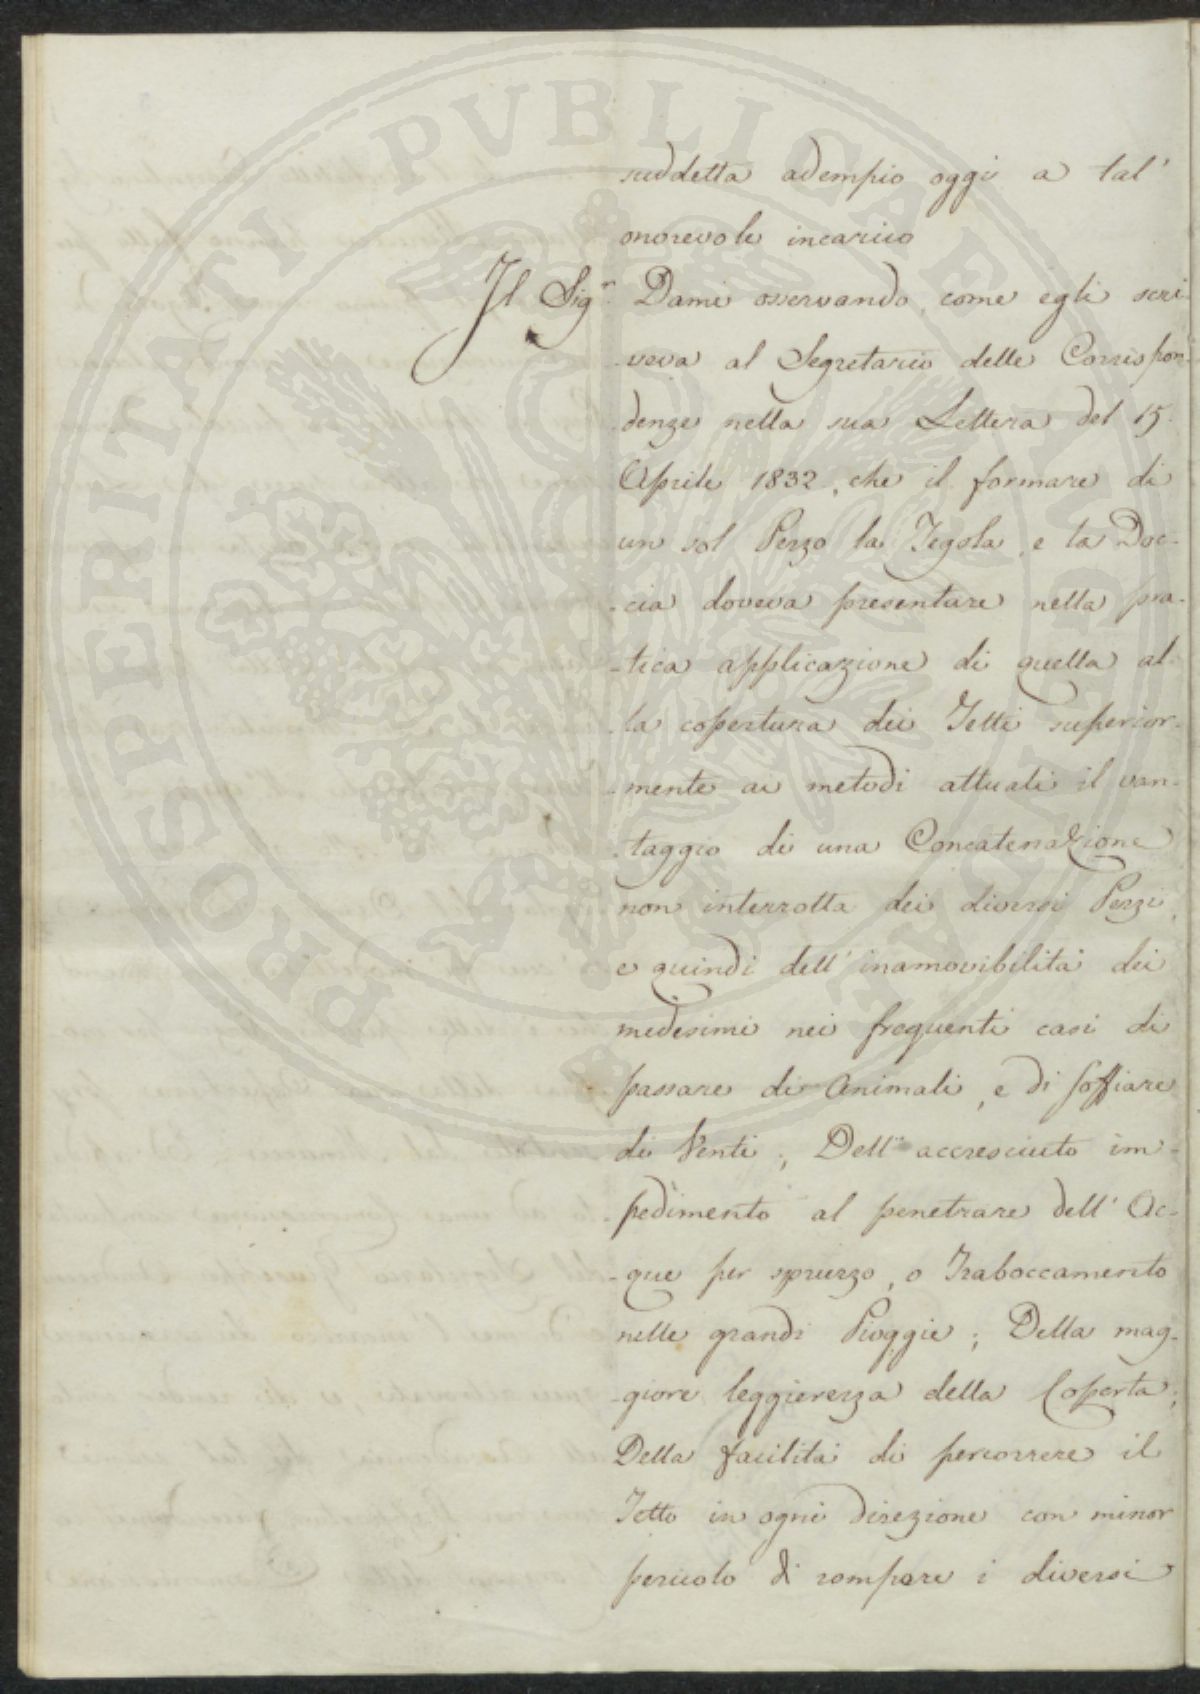 suddetta adempio oggi a tal'
onorevole incarico
Il Sig.r Dami osservando, come egli scri-
-veva al Segretario delle Corrispon-
denze nella sua Lettera del 15.
Aprile 1832, che il formare di
un sol Pezzo la Tegola, e la Doc-
-cia doveva presentare nella pra-
-tica applicazione di quella al-
-la copertura dei Tetti superior-
-mente ai metodi attuali il van-
-taggio di una Concatenazione
non interrotta dei diversi Pezzi,
e quindi dell'inamovibilità dei
medesimi nei frequenti casi di
passare di Animali, e di soffiare
di Venti; Dell'accresciuto im-
pedimento al penetrare dell'Ac-
-que per spruzzo, o Traboccamento
nelle grandi Pioggie; Della mag-
-giore leggierezza della Coperta;
Della facilità di percorrere il
Tetto in ogni direzione con minor
pericolo di rompere i diversi
PROSPERITATI PVBLICAE AVGENDAE